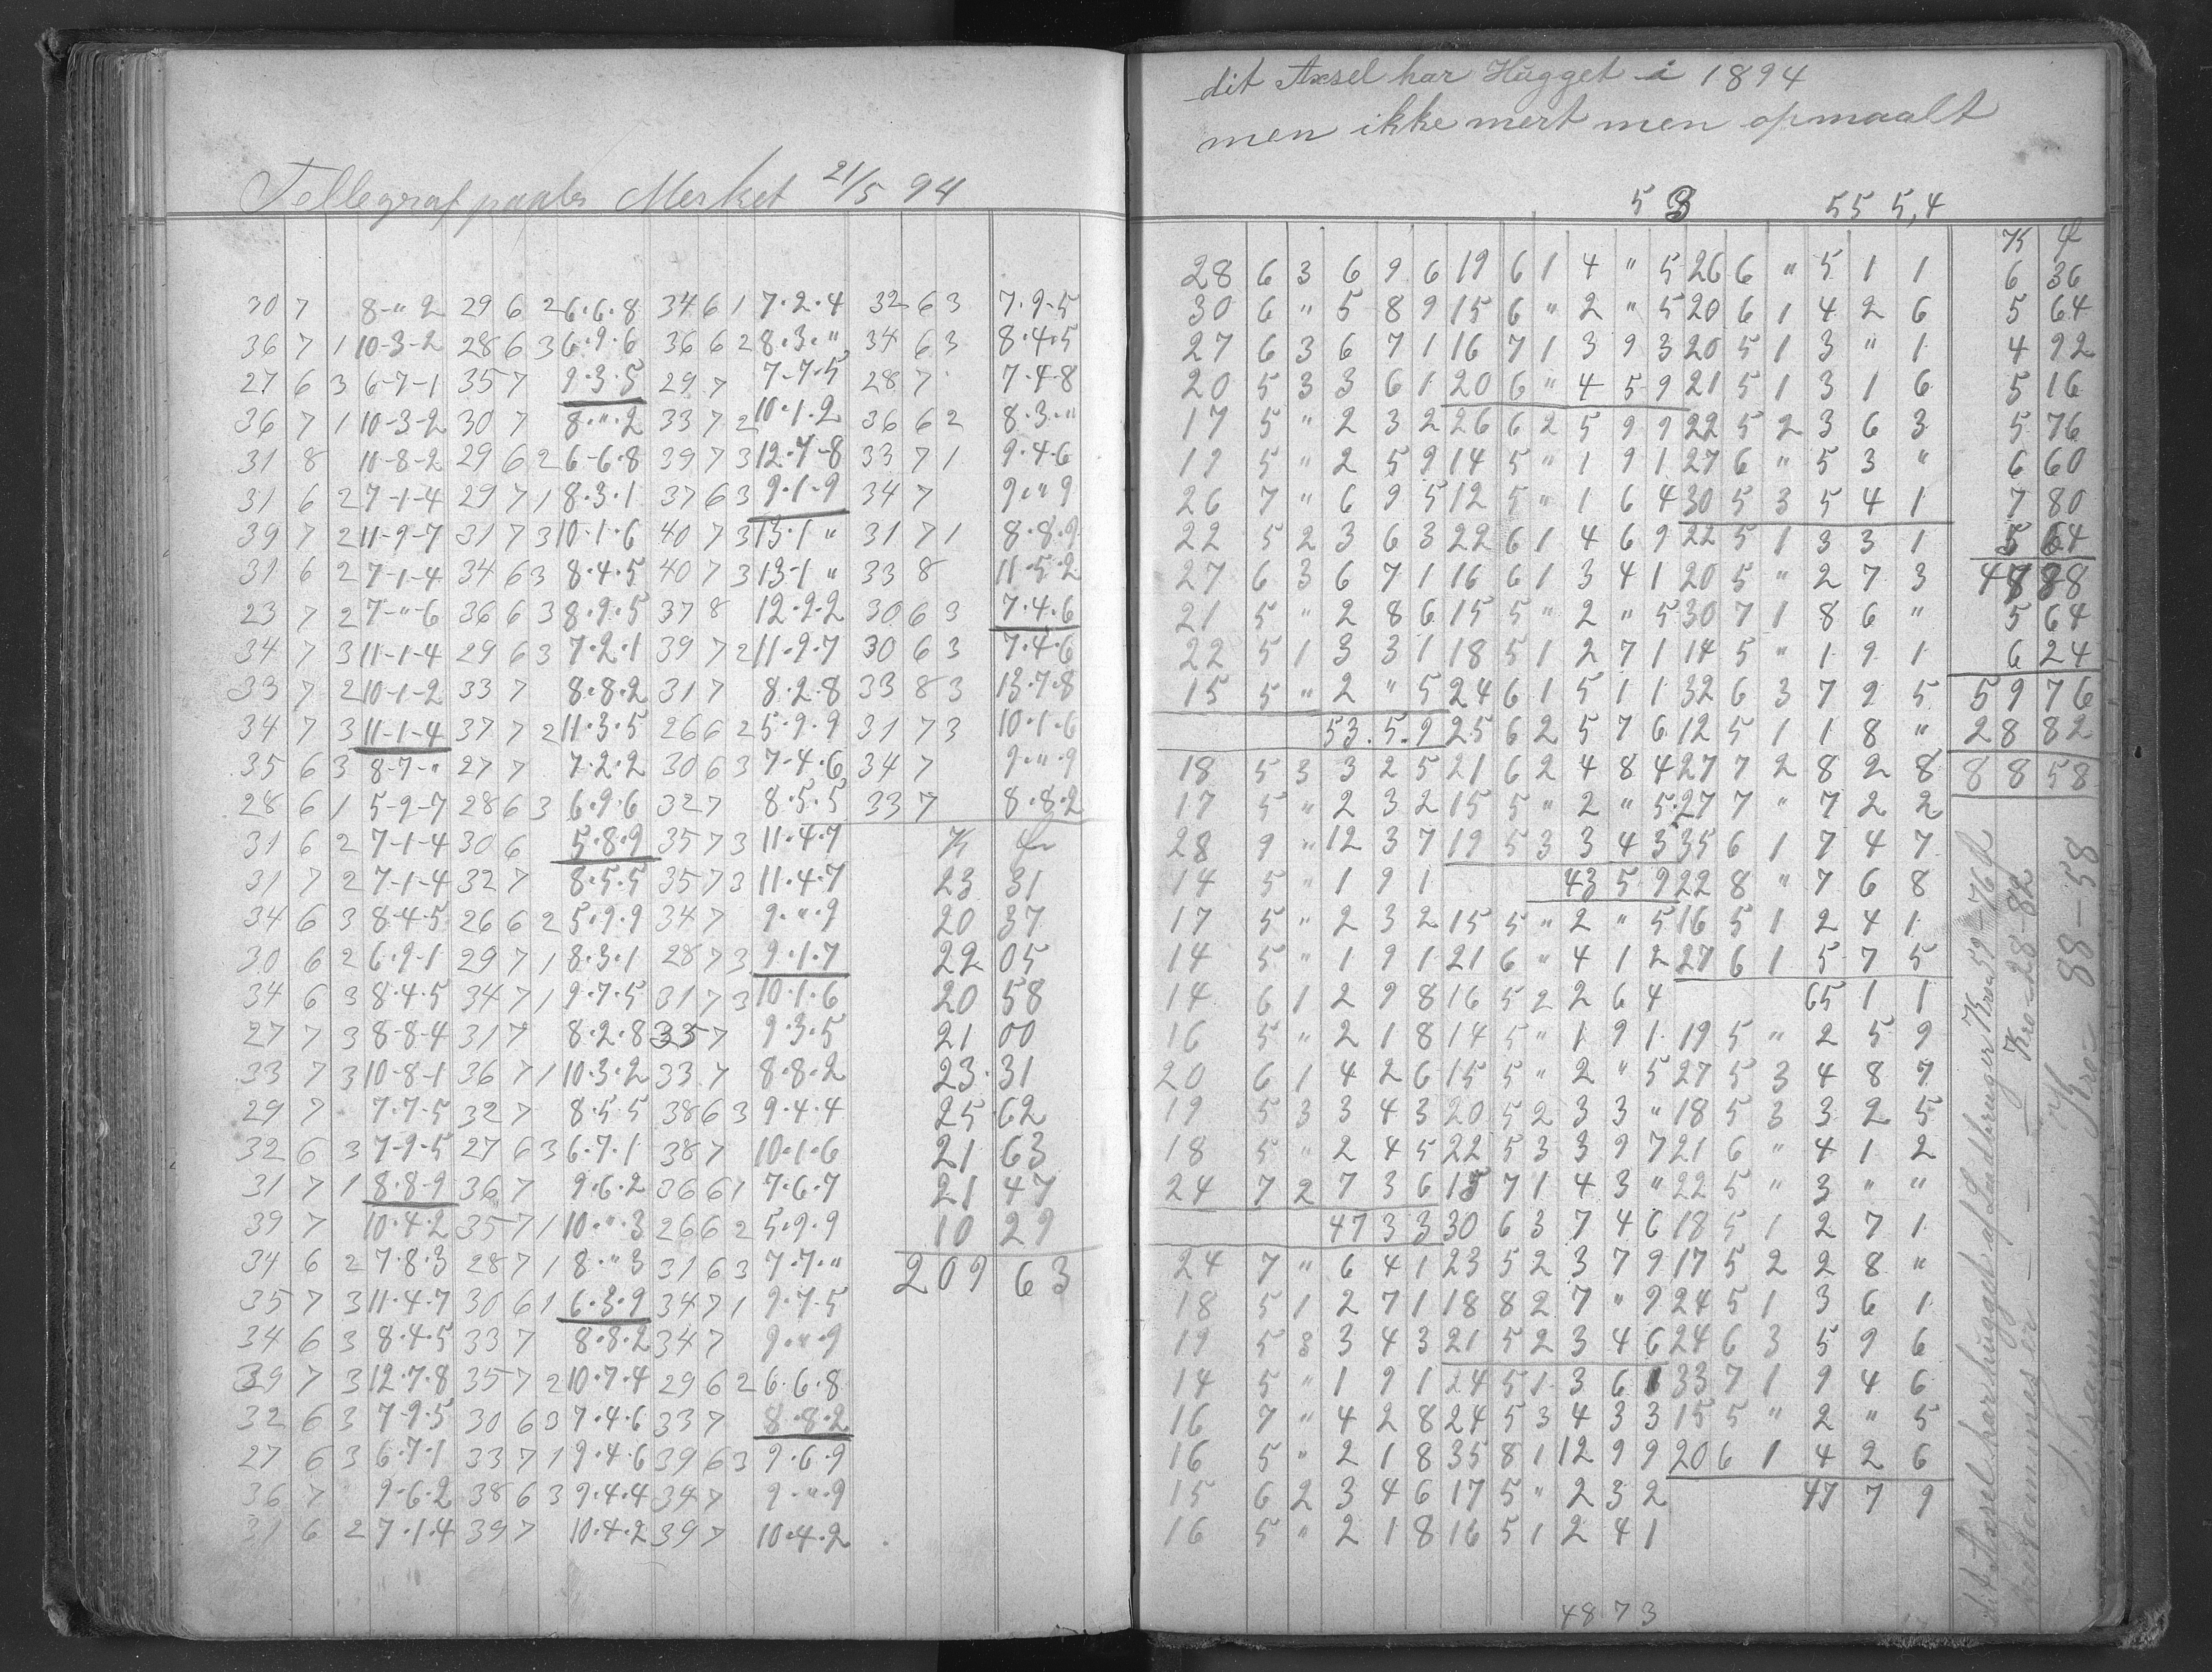 Tellegraf paaler Merket 21/5 94
30 7 8-"-2 29 6 2 6.6.8 34 6 1 7.2.4 32 6 3 7.9.5
36 7 1 10-3-2 28 6 3 6.9.6 36 6 2 8.3." 34 6 3 8.4.5
27 6 3 6-7-1 35 7 9.3.5 29 7 7-7.5 28 7 7.4.8
36 7 1 10-3-2 30 7 8.".2 33 7 2 10.1.2 36 6 2 8.3."
31 8 11-8-2 29 6 2 6-6.8 39 7 3 12.7-8 33 7 1 9.4.6
31 6 2 7-1-4 29 7 1 8.3.1 37 6 3 9.1.9 34 7 9.".9
39 7 2 11-9-7 31 7 3 10.1.6 40 7 3 13.1 " 31 7 1 8.8.9
31 6 2 7-1-4 34 6 3 8.4.5 40 7 3 13-1 " 33 8 11.5.2
23 7 2 7-"-6 36 6 3 8.9.5 37 8 12.9.2 30 6 3 7.4.6
34 7 3 11-1-4 29 6 3 7.2.1 39 7 2 11.9.7 30 6 3 7.4.6
33 7 2 10-1-2 33 7 8.8.2 31 7 8.2.8 33 8 3 13.7.8
34 7 3 11-1-4 37 7 2 11.3.5 26 6 2 5.9.9 31 7 3 10.1.6
35 6 3 8-7-" 27 7 7.2.2 30 6 3 7-4.6 34 7 9.".9
28 6 1 5-9-7 28 6 3 6.9.6 32 7 8.5.5 33 7 8.8.2
31 6 2 7-1-4 30 6 5.8.9 35 7 3 11.4.7 K
31 7 2 7-1-4 32 7 8.5.5 35 7 3 11.4.7 23 31
34 6 3 8-4-5 26 6 2 5.9.9 34 7 9.".9 20 37
30 6 2 6-9-1 29 7 1 8.3.1 28 7 3 9.1.7 22 05
34 6 3 8.4.5 34 7 1 9.7.5 31 7 3 10.1.6 20 58
27 7 3 8-8-4 31 7 8.2.8 35 7 9.3.5 21 00
33 7 3 10-8-1 36 7 1 10.3.2 33 7 8.8.2 23.31
29 7 7.7.5 32 7 8.5.5 38 6 3 9.4.4 25 62
32 6 3 7-9-5 27 6 3 6.7.1 38 7 10.1.6 21 63
31 7 1 8.8.9 36 7 9.6.2 36 6 1 7.6.7 21 47
39 7 10.4.2 35 7 1 10.".3 26 6 2 5.9.9 10 29
34 6 2 7.8.3 28 7 1 8.".3 31 6 3 7.7." 209 63
35 7 3 11.4.7 30 6 1 6.3.9 34 7 1 9.7.5
34 6 3 8.4.5 33 7 8.8.2 34 7 9.".9
39 7 3 12.7.8 35 7 2 10.7.4 29 6 2 6.6.8
32 6 3 7.9.5 30 6 3 7.4.6 33 7 8.8.2
27 6 3 6.7.1 33 7 1 9.4.6 39 6 3 9.6.9
36 7 9.6.2 38 6 3 9.4.4 34 7 9.".9
31 6 2 7.1.4 39 7 10.4.2 39 7 10.4.2
dit Axsel har Hugget i 1894
men ikke mert men opmaalt
5 3 55 5,4
K
28 6 3 6 9 6 19 6 1 4 " 5 26 6 " 5 1 1 6 36
30 6 " 5 8 9 15 6 " 2 " 5 20 6 1 4 2 6 5 64
27 6 3 6 7 1 16 7 1 3 9 3 20 5 1 3 " 1 4 92
20 5 3 3 6 1 20 6 " 4 5 9 21 5 1 3 1 6 5 16
17 5 " 2 3 2 26 6 2 5 9 9 22 5 2 3 6 3 5 76
19 5 " 2 5 9 14 5 " 1 9 1 27 6 " 5 3 " 6 60
26 7 " 6 9 5 12 5 " 1 6 4 30 5 3 5 4 1 7 80
22 5 2 3 6 3 22 6 1 4 6 9 22 5 1 3 3 1 5 64
27 6 3 6 7 1 16 6 1 3 4 1 20 5 " 2 7 3 47 88
21 5 " 2 8 6 15 5 " 2 " 5 30 7 1 8 6 " 5 64
22 5 1 3 3 1 18 5 1 2 7 1 14 5 " 1 9 1 6 24
15 5 " 2 " 5 24 6 1 5 1 1 32 6 3 7 9 5 59 76
53.5.9 25 6 2 5 7 6 12 5 1 1 8 " 28 82
18 5 3 3 2 5 21 6 2 4 8 4 27 7 2 8 2 8 88 58
17 5 " 2 3 2 15 5 " 2 " 5 27 7 " 7 2 2
28 9 " 12 3 7 19 5 3 3 4 3 35 6 1 7 4 7
14 5 " 1 9 1 43 5 9 22 8 " 7 6 8
17 5 " 2 3 2 15 5 " 2 " 5 16 5 1 2 4 1
14 5 " 1 9 1 21 6 " 4 1 2 27 6 1 5 7 5
14 6 1 2 9 8 16 5 2 2 6 4 65 1 1
16 5 " 2 1 8 14 5 " 1 9 1 19 5 " 2 5 9
20 6 1 4 2 6 15 5 " 2 " 5 27 5 3 4 8 7
19 5 3 3 4 3 20 5 2 3 3 " 18 5 3 3 2 5
18 5 " 2 4 5 22 5 3 3 9 7 21 6 " 4 1 2
24 7 2 7 3 6 15 7 1 4 3 " 22 5 " 3 " "
47 3 3 30 6 3 7 4 6 18 5 1 2 7 1
24 7 " 6 4 1 23 5 2 3 7 9 17 5 2 2 8 "
18 5 1 2 7 1 18 8 2 7 " 9 24 5 1 3 6 1
19 5 3 3 4 3 21 5 2 3 4 6 24 6 3 5 9 6
14 5 " 1 9 1 24 5 1 3 6 1 33 7 1 9 4 6
16 7 " 4 2 8 24 5 3 4 3 3 15 5 " 2 " 5
16 5 " 2 1 8 35 8 1 12 9 9 20 6 1 4 2 6
15 6 2 3 4 6 17 5 " 2 3 2 47 7 9
16 5 " 2 1 8 16 5 1 2 4 1
48 7 3
dit Axsel har hugget af Lindbruger Kro 59-76
Kro 28-82
Kro 88-58